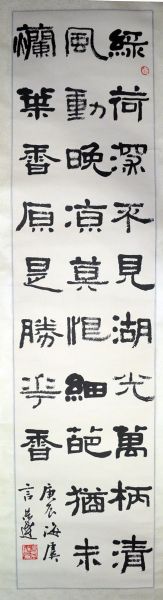 綠荷深不見湖光萬柄清
風動晚涼莫恨細葩猶未
爛葉香原是勝華香
庚辰海虞
言恭達